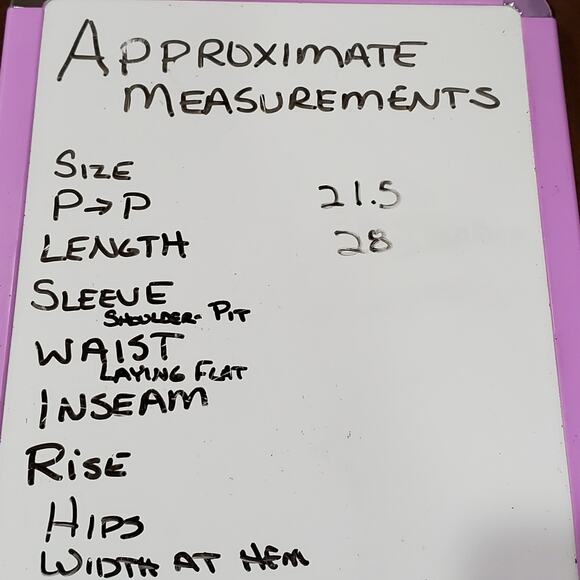 APPROXIMATE
MEASUREMENTS
SIZE
P→P 21.5
LENGTH 28
SLEEVE
SHOULDER- PIT
WAIST
LAYING FLAT
INSEAM
RISE
HIPS
WIDTH AT HEM